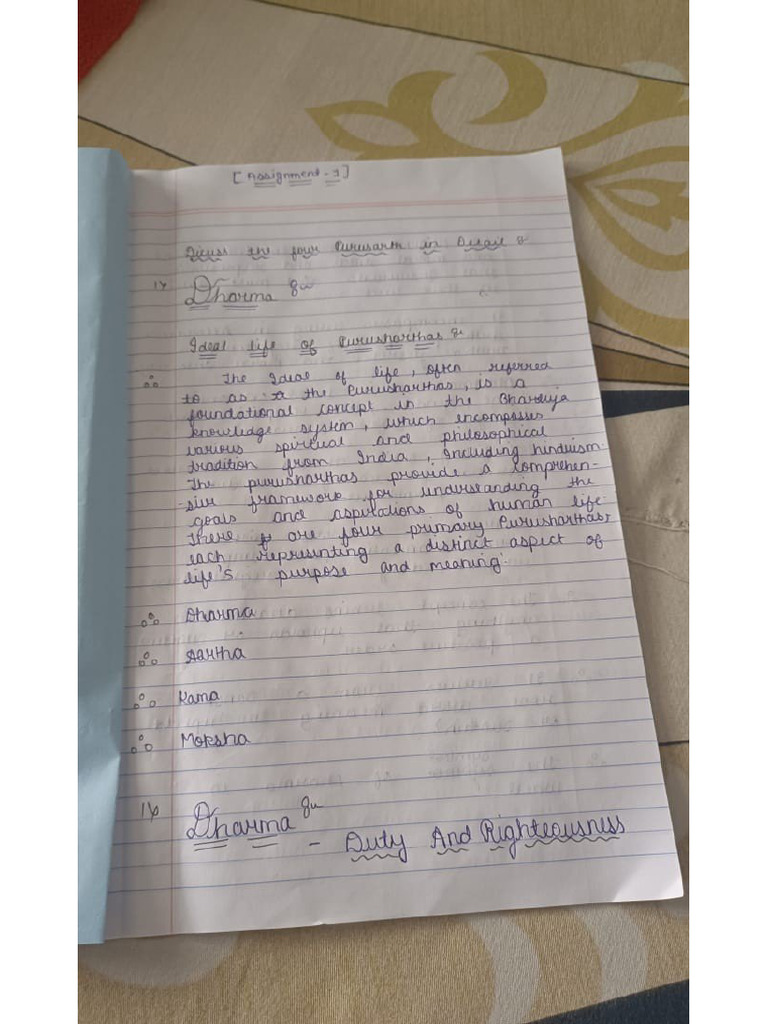 [Assignment - 1]
Dicuss the four Purusarth in Detail :-
1)
Dharma :-
Ideal life of Purusharthas :-
∴ The Ideal of life, often referred
to as the Purusharthas, is a
foundational concept in the Bhartiya
knowledge system, which encompasses
various spiritual and philosophical
tradition from India, Including hinduism.
The purusharthas provide a comprehen-
-sive framework for understanding the
goals and aspirations of human life.
There are four primary Purusharthas,
each represinting a distinct aspect of
life's purpose and meaning.
∴ Dharma
∴ Aartha
∴ Kama
∴ Moksha
1)
Dharma :-
- Duty And Righteousness